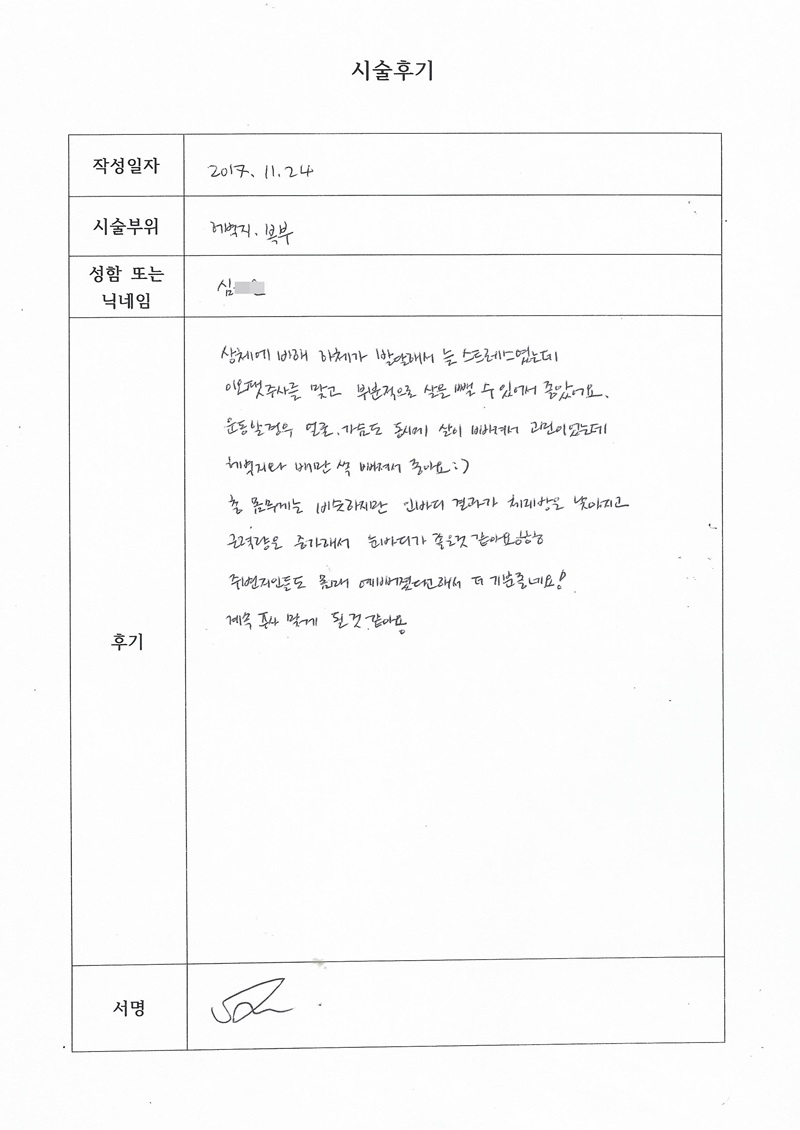 시술후기
작성일자
2017. 11. 24
시술부위
허벅지. 복부
성함 또는
닉네임
심
후기
상체에 비해 하체가 발달해서 늘 스트레스였는데
주사를 맞고 부분적으로 살을 뺄 수 있어서 좋았어요.
운동할경우 얼굴.가슴도 동시에 살이 빠져서 고민이었는데
허벅지와 배만 싹 빠져서 좋아요:)
몸무게는 비슷하지만 인바디 결과가 체지방은 낮아지고
근력량은 증가해서 눈바디가 좋은것 같아요
주변지인들도 몸매 예뻐졌다고해서 더 기분좋네요!
계속 주사 맞게 될 것 같아용
서명